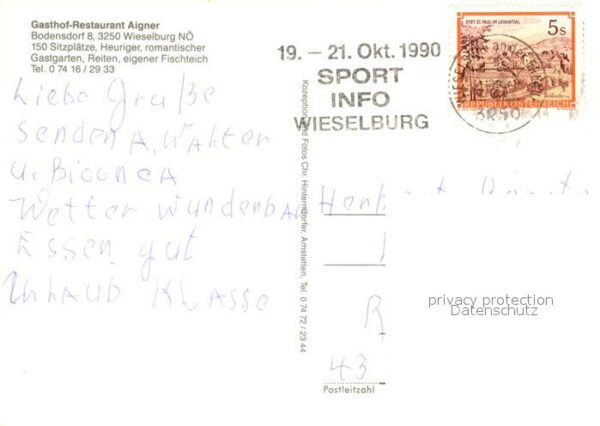 Gasthof-Restaurant Aigner
Bodensdorf 8, 3250 Wieselburg NÖ
150 Sitzplätze, Heuriger, romantischer
Gastgarten, Reiten, eigener Fischteich
Tel. 0 74 16 / 29 33
Liebe Grüße
senden A. Walter
u. Bionca
Wetter wunderbar
Essen gut
Urlaub Klasse
Konzeption und Fotos Chr. Hinterndorfer, Amstetten, Tel. 0 74 72 / 23 44
19. – 21. Okt. 1990
SPORT
INFO
WIESELBURG
STIFT ST. PAUL IM LAVANTTAL
5s
REPUBLIK ÖSTERREICH
R
43
Postleitzahl
privacy protection
Datenschutz